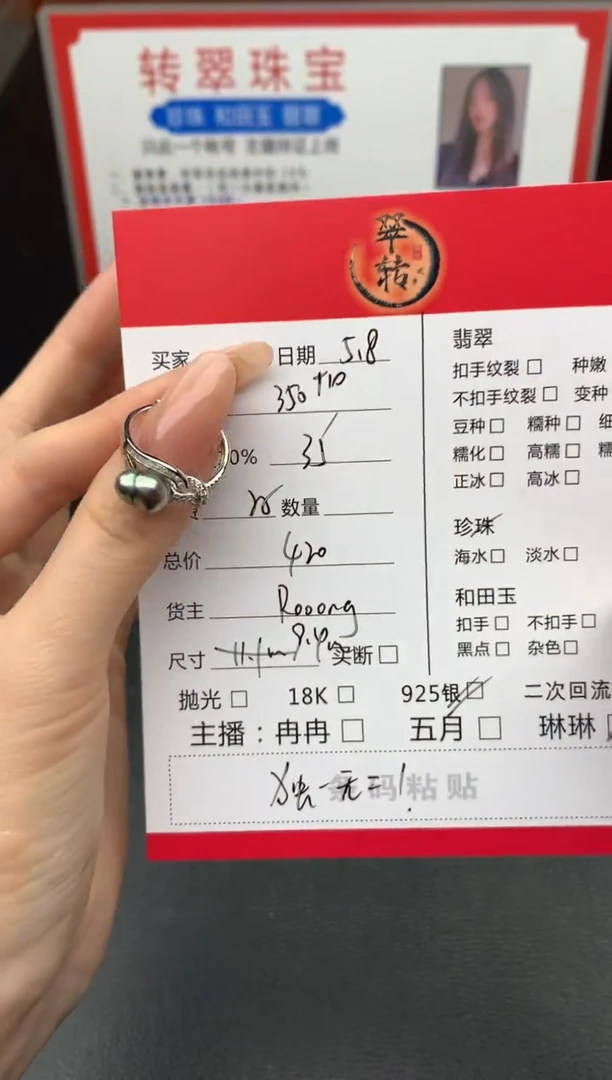 转翠珠宝
珍珠 和田玉 翡翠
翠
转
买家 日期 5.8
350+10
0% 35
数量
总价 420
货主 Rooong
尺寸 9.4m 买断
抛光 18K 925银 二次回流
主播：冉冉 五月 琳琳
一无二!
条码粘贴
翡翠
扣手纹裂 种嫩
不扣手纹裂 变种
豆种 糯种 细
糯化 高糯 糯
正冰 高冰
珍珠
海水 淡水
和田玉
扣手 不扣手
黑点 杂色